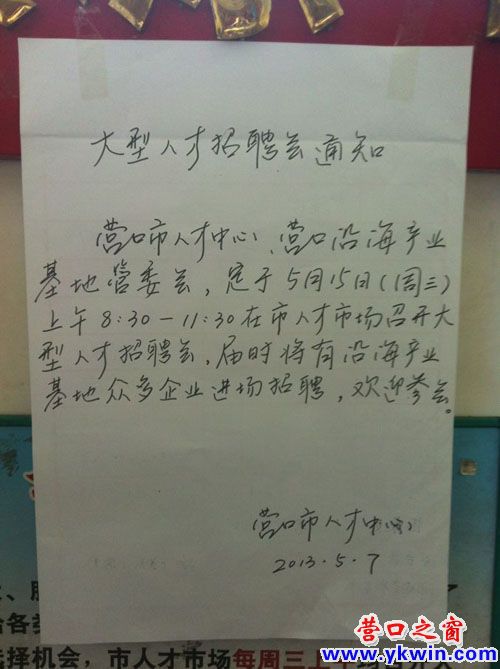 大型人才招聘会通知
营口市人才中心、营口沿海产业
基地管委会，定于5月15日(周三)
上午8:30-11:30在市人才市场召开大
型人才招聘会，届时将有沿海产业
基地众多企业进场招聘，欢迎参会。
营口市人才中心
2013.5.7
给各类
择机会，市人才市场每周三
营口之窗
www.ykwin.com